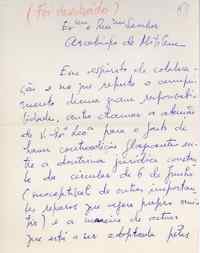 (Foi devolvido)
Ex.mo e Rev.mo Senhor
Arcebispo de Mitilene
Em espírito de colabora-
ção e no que respeita a cumpri-
mento duma grave responsabi-
lidade, outra chamar a atenção
de V. Ex.a Rev.a para o facto de
haver contradição flagrante en-
tre a doutrina jurídica constan-
te da circular de 6 de Junho
(susceptível de outros importan-
tes reparos que agora prefiro omi-
tir) e a maneira de actuar
que está a ser adoptada pelos